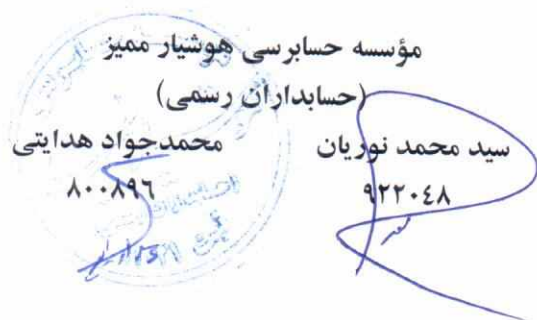 مؤسسه حسابرسی هوشیار ممیز
(حسابداران رسمی)
سید محمد نوریان محمدجواد هدایتی
۹۲۲۰٤۸ ۸۰۰۸۹٦